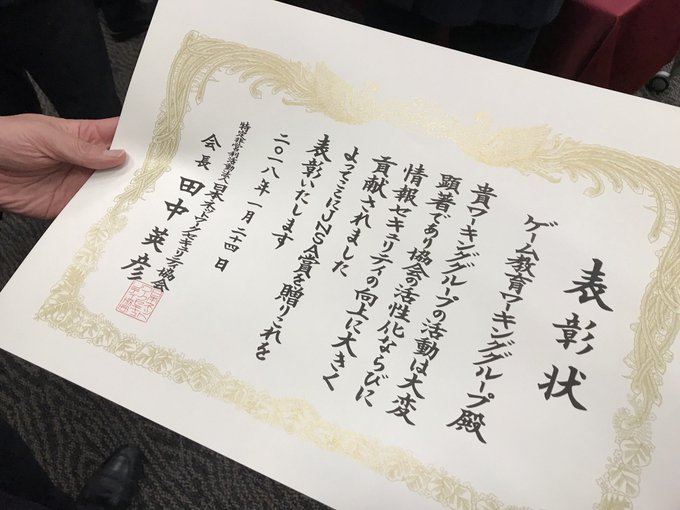 表彰状
ゲーム教育ワーキンググループ殿
貴ワーキンググループの活動は大変
顕著であり協会の活性化ならびに
情報セキュリティの向上に大きく
貢献されました
よってここにJNSA賞を贈りこれを
表彰いたします
二〇一八年一月二十四日
特定非営利活動法人日本ネットワークセキュリティ協会
会長 田中英彦